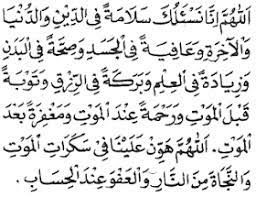 اَللّٰهُمَّ اِنَّا نَسْئَلُكَ سَلَامَةً فِى الدِّيْنِ وَالدُّنْيَا
وَالْآخِرَةِ وَعَافِيَةً فِى الْجَسَدِ وَصِحَّةً فِى الْبَدَنِ
وَزِيَادَةً فِى الْعِلْمِ وَبَرَكَةً فِى الرِّزْقِ وَتَوْبَةً
قَبْلَ الْمَوْتِ وَرَحْمَةً عِنْدَ الْمَوْتِ وَمَغْفِرَةً بَعْدَ
الْمَوْتِ. اَللّٰهُمَّ هَوِّنْ عَلَيْنَا فِى سَكَرَاتِ الْمَوْتِ
وَالنَّجَاةَ مِنَ النَّارِ وَالْعَفْوَ عِنْدَ الْحِسَابِ.